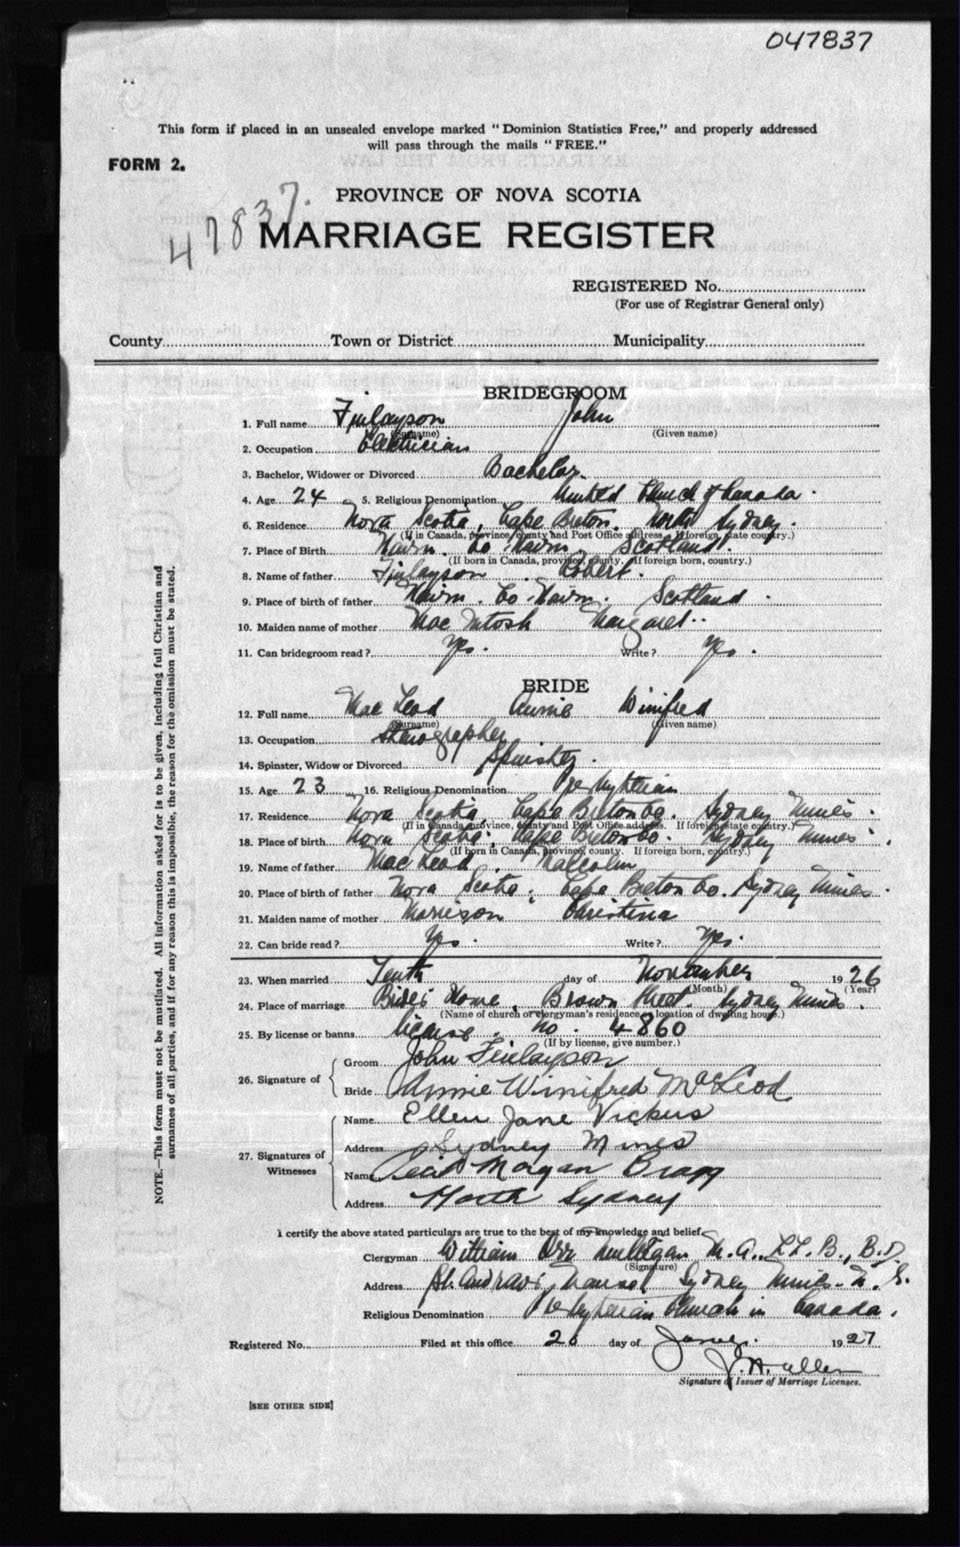 047837
This form if placed in an unsealed envelope marked "Dominion Statistics Free," and properly addressed
will pass through the mails "FREE."
FORM 2.
47837.
PROVINCE OF NOVA SCOTIA
MARRIAGE REGISTER
REGISTERED No.
(For use of Registrar General only)
County Town or District Municipality
BRIDEGROOM
1. Full name Finlayson John
(Surname) (Given name)
2. Occupation Electrician
3. Bachelor, Widower or Divorced Bachelor.
4. Age 24 5. Religious Denomination United Church of Canada.
6. Residence Nova Scotia, Cape Breton, North Sydney.
(If in Canada, province, county and Post Office address. If foreign, state country.)
7. Place of Birth Nairn. Co Nairn Scotland.
(If born in Canada, province, county. If foreign born, country.)
8. Name of father Finlayson Robert.
9. Place of birth of father Nairn. Co. Nairn. Scotland.
10. Maiden name of mother MacIntosh Margaret.
11. Can bridegroom read? Yes. Write? Yes.
BRIDE
12. Full name MacLeod Annie Winifred
(Surname) (Given name)
13. Occupation Stenographer
14. Spinster, Widow or Divorced Spinster.
15. Age 23 16. Religious Denomination Presbyterian
17. Residence Nova Scotia, Cape Breton Co. Sydney Mines.
(If in Canada, province, county and Post Office address. If foreign, state country.)
18. Place of birth Nova Scotia, Cape Breton Co. Sydney Mines.
(If born in Canada, province, county. If foreign born, country.)
19. Name of father MacLeod Malcolm
20. Place of birth of father Nova Scotia, Cape Breton Co. Sydney Mines.
21. Maiden name of mother Morrison Christina
22. Can bride read? Yes. Write? Yes.
23. When married Tenth day of November 1926
(Month) (Year)
24. Place of marriage Bride's Home, Brown Street. Sydney Mines.
(Name of church or clergyman's residence or location of dwelling house.)
25. By license or banns license. no. 4860
(If by license, give number.)
26. Signature of
Groom John Finlayson
Bride Annie Winifred McLeod
27. Signatures of Witnesses
Name Ellen Jane Vickers
Address Sydney Mines
Name Morgan Bragg
Address North Sydney
I certify the above stated particulars are true to the best of my knowledge and belief
Clergyman William Orr Mulligan M.A., LL.B., B.D.
(Signature)
Address St. Andrew's Manse, Sydney Mines. N.S.
Religious Denomination Presbyterian Church in Canada.
Registered No. Filed at this office 26 day of Jany. 1927
Signature of Issuer of Marriage Licenses.
[SEE OTHER SIDE]
NOTE.—This form must not be mutilated. All information asked for is to be given, including full Christian and
surnames of all parties, and if for any reason this is impossible, the reason for the omission must be stated.